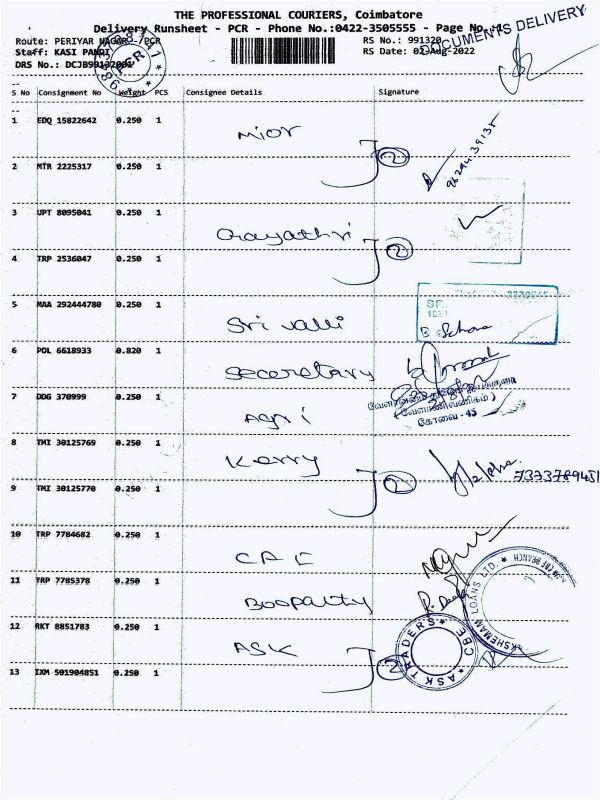 THE PROFESSIONAL COURIERS, Coimbatore
Delivery Runsheet - PCR - Phone No.:0422-3505555 - Page No.
DOCUMENTS DELIVERY
Route: PERIYAR NAGAR - PCR
RS No.: 991320
Staff: KASI PANDI
RS Date: 02-Aug-2022
DRS No.: DCJB99132001
S No Consignment No Weight PCS Consignee Details Signature
1 EDQ 15822642 0.250 1 Mior
2 MTR 2225317 0.250 1
3 UPT 8095041 0.250 1 Gayathri
4 TRP 2536047 0.250 1
5 MAA 292444780 0.250 1 Sri valli
6 POL 6618933 0.820 1 Secretary
7 DDG 370999 0.250 1 Agri
கோவை - 45
8 TMI 30125769 0.250 1 Kerry
9 TMI 30125770 0.250 1
10 TRP 7784682 0.250 1
11 TRP 7785378 0.250 1
12 RKT 8851783 0.250 1 ASK
ASK TRADERS CBE
LOANS LTD.
13 IXM 501904851 0.250 1